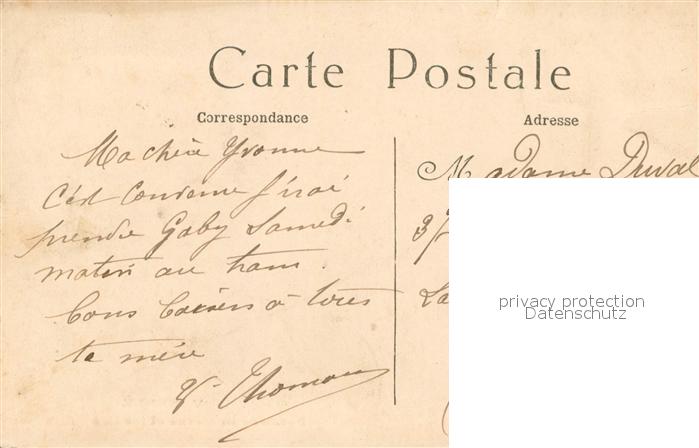 Carte Postale
Correspondance
Adresse
Ma chère Yvonne
C'est convenue j'irai
prendre Gaby Samedi
matin au tram.
Bons baisers à tous
ta mère
V. Thomas
Madame Duval
37
La
privacy protection
Datenschutz